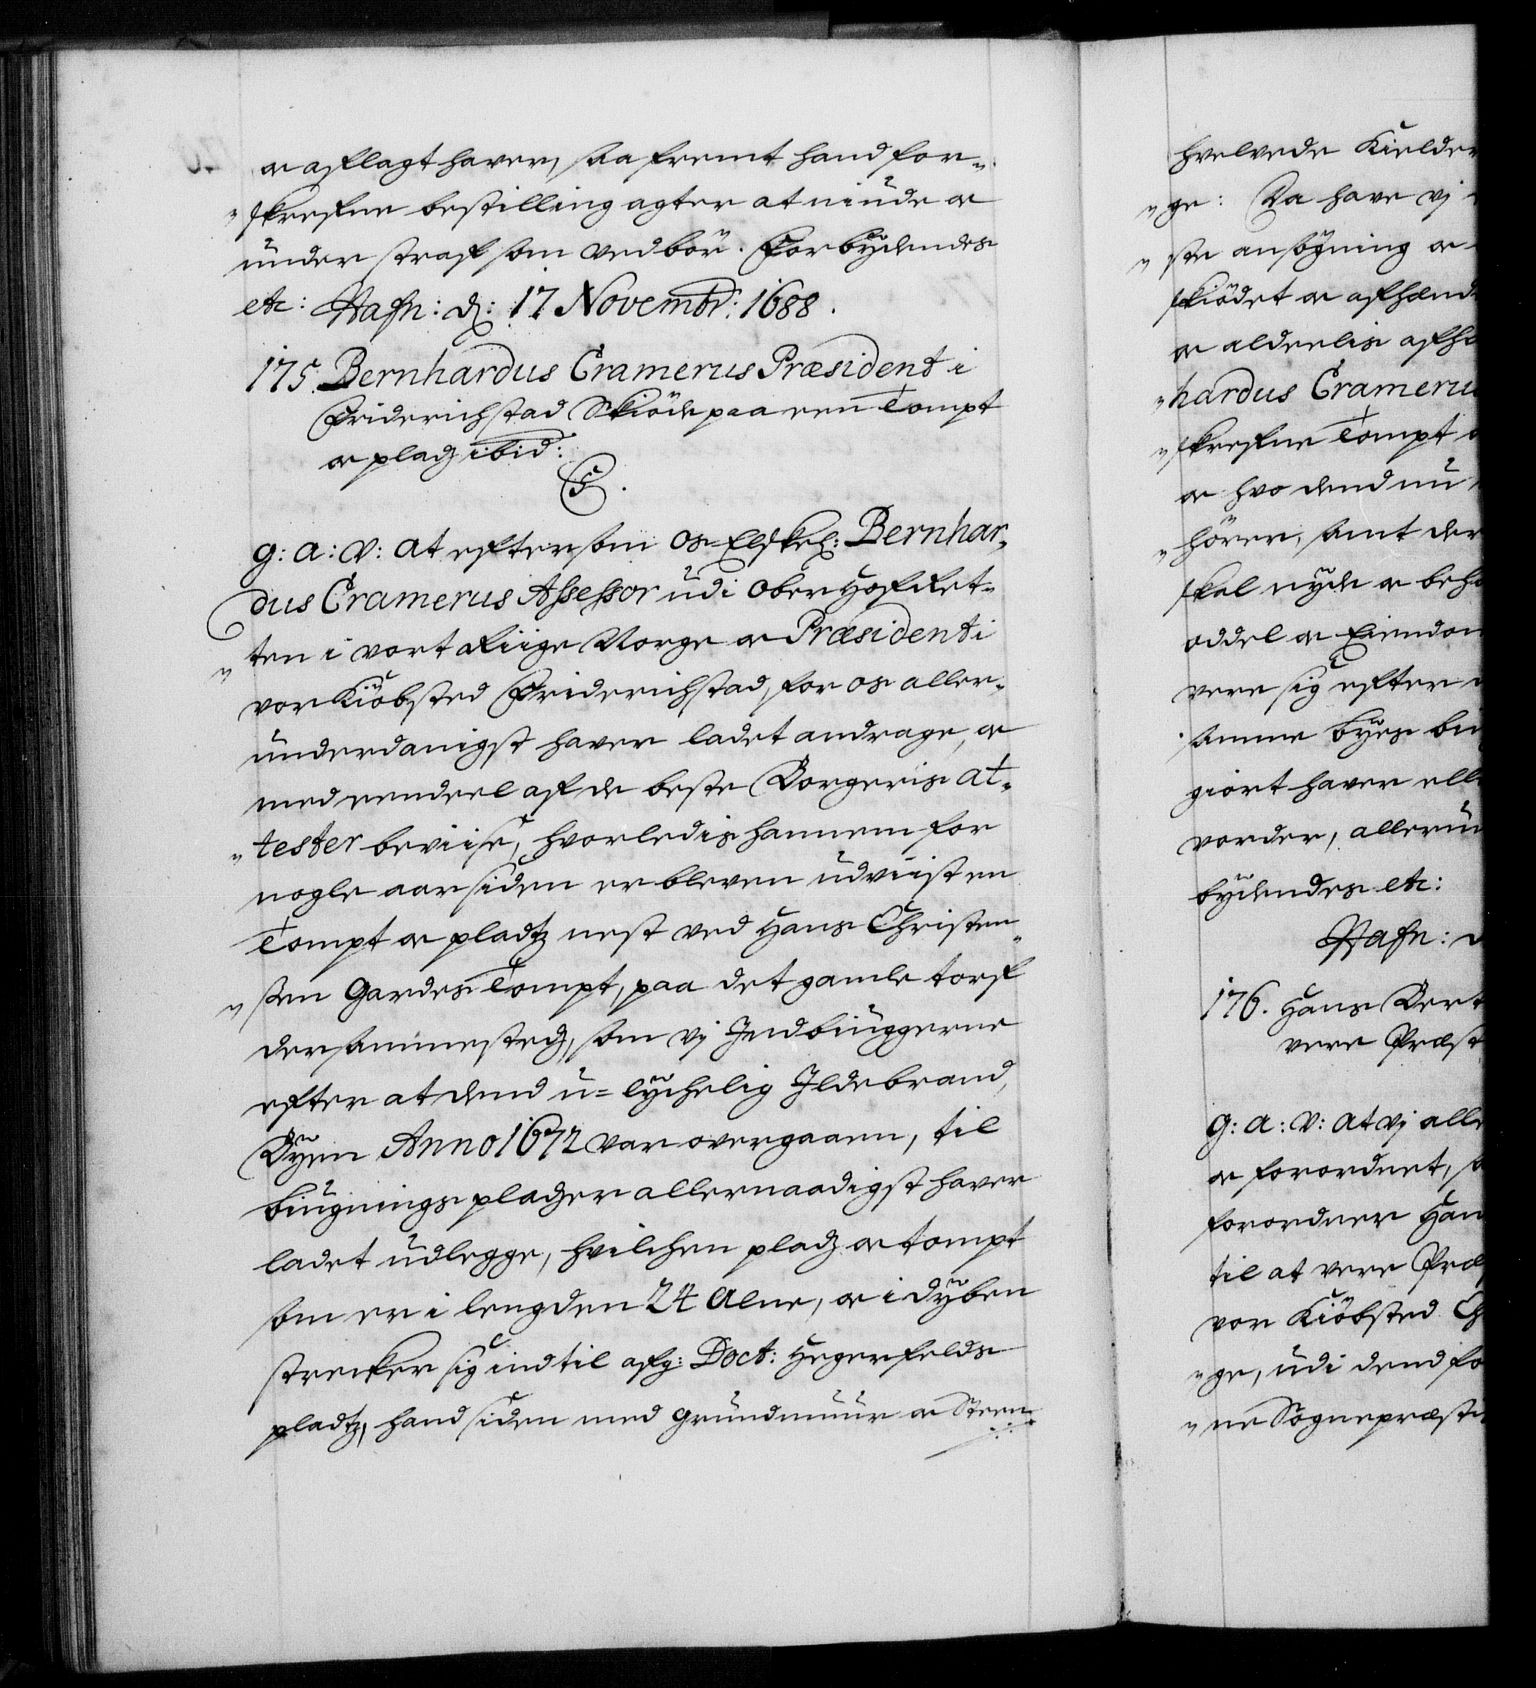 oc aflagt haver, saa fremt hand for-
„skrefne bestilling agter at niude oc
under straf som vedbör. Forbydendes
etc: Hafn: d: 17 Novembr: 1688.
175. Bernhardus Cramerus Præsident i
Friderichstad Skiöde paa een Tompt
oc pladz ibid:
C5.
G: A: V: At eftersom os Elskel: Bernhar-
dus Cramerus Assessor udi Ober Hof Ret-
„ten i vort Riige Norge oc Præsident i
vor Kiöbsted Friderichstad, for os aller-
underdanigst haver ladet andrage, oc
med eendeel af de beste Borgeris At-
„tester beviise, hvorledis hannem for
nogle aar siden er bleven udviist en
Tompt oc pladtz nest ved Hans Christen-
„sen Gardes Tompt, paa det gamle torf
dersammesteds, som vj Indbiuggerne
efter at dend u=lychelig Ildebrand,
Byen Anno 1672 var overgaaen, til
biugnings pladzer allernaadigst haver
ladet udlegge, hvilchen pladz oc tompt
som er i lengden 24 Alne, oc i dyben
strecker sig ind til afg: Doct: Hegerfelds
pladtz, hand siden med Grundmuur oc Steen-
hvelvede Kielder
„ge: Da have vj
„ste ansögning oc
skiödet oc afhænd
oc alderlis afhæ
„hardus Cramerus
„skrefne Tompt
oc hvo dend nu
„hörer, samt der
skal nyde oc beho
oddel oc Eiendom
vere sig efter
samme byes bu
giort haver ell
vorder, allerun
bydendes etc:
Hafn: d
176. Hans Bert
vere Præst
G: A: V: At vj alle
oc forordnet, s
forordner Han
til at vere Præ
vor Kiöbsted Ch
„ge, udi dend fo
„ne Sognepræste